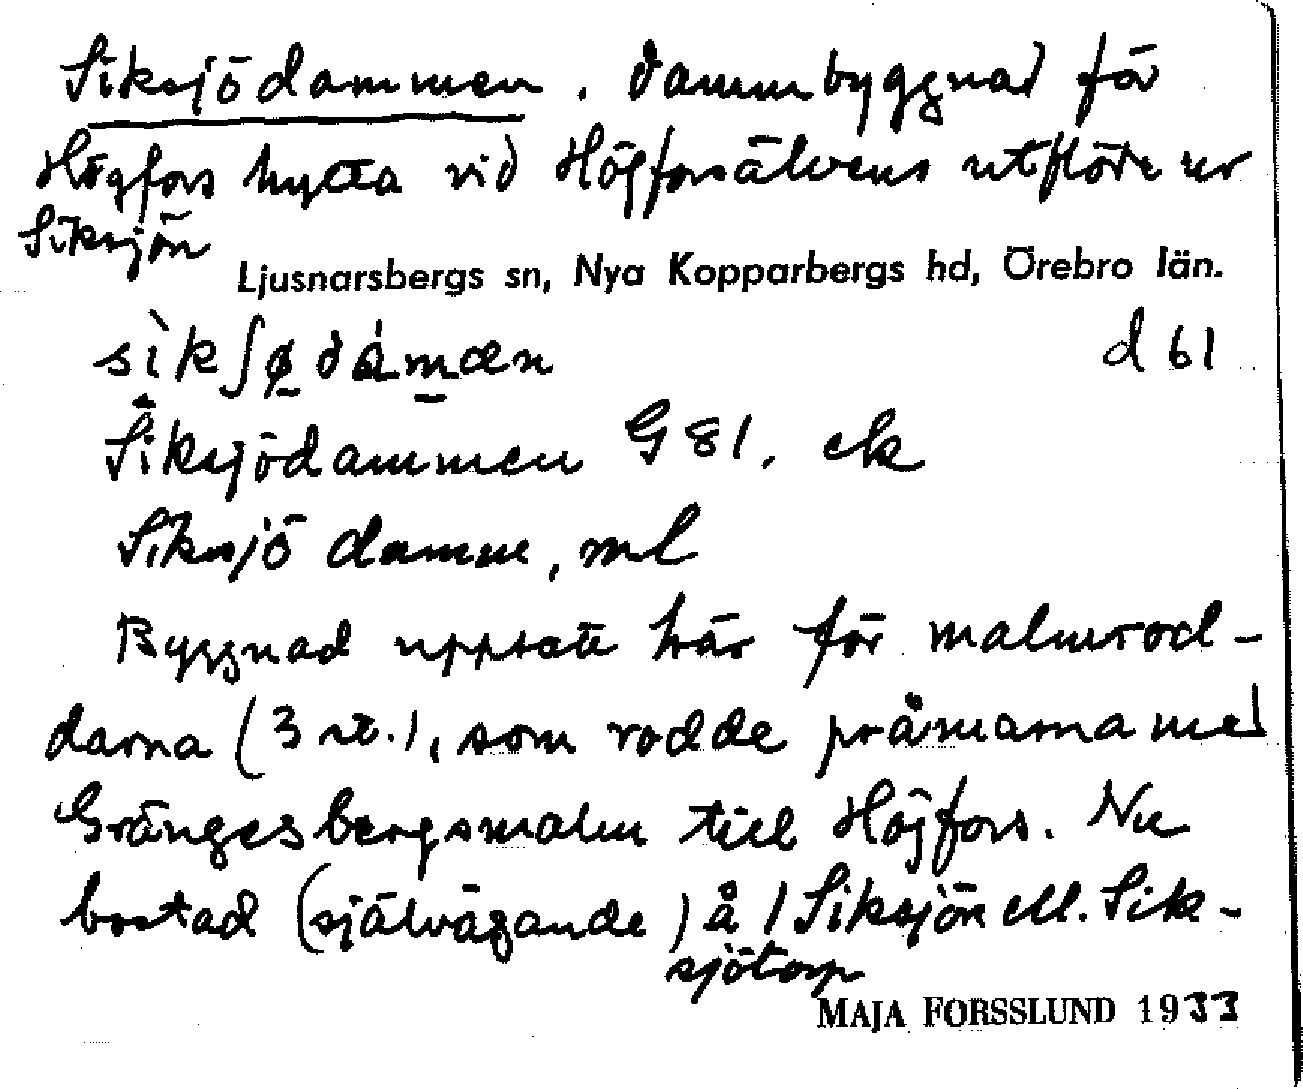 Siksjödammen. Dammbyggnad för
Högfors hytta vid Högforsälvens utflöde ur
Siksjön
Ljusnarsbergs sn, Nya Kopparbergs hd, Örebro län.
sìkʃø̱dàm̱æn d 61
Siksjödammen G 81. ek
Siksjö damm, ml
Byggnad uppsatt här för malmrod-
darna (3 st.), som rodde pråmarna med
Grängesbergsmalm till Högfors. Nu
bostad (självägande) å 1 Siksjön ell. Sik-
sjötorp
MAJA FORSSLUND 1933